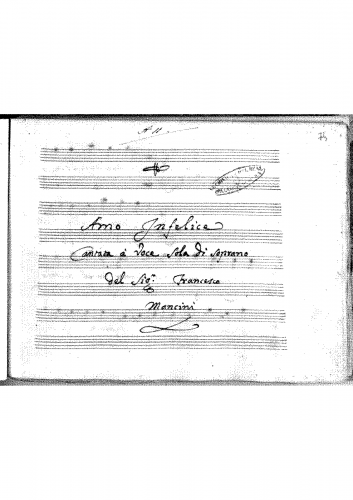 A 11
75
Amo Infelice
Cantata à Voce Sola di Soprano
del Sig.r Francesco
Mancini